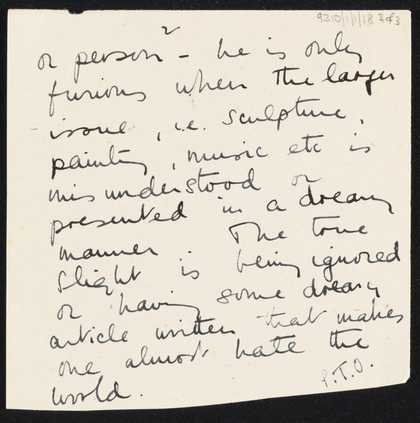 9210/1/1/18 2 of 3
or person² – he is only
furious when the larger
issue, i.e. sculpture,
painting, music etc is
misunderstood or
presented in a dreary
manner. The true
slight is being ignored
or having some dreary
article written that makes
one almost hate the
world.
P.T.O.